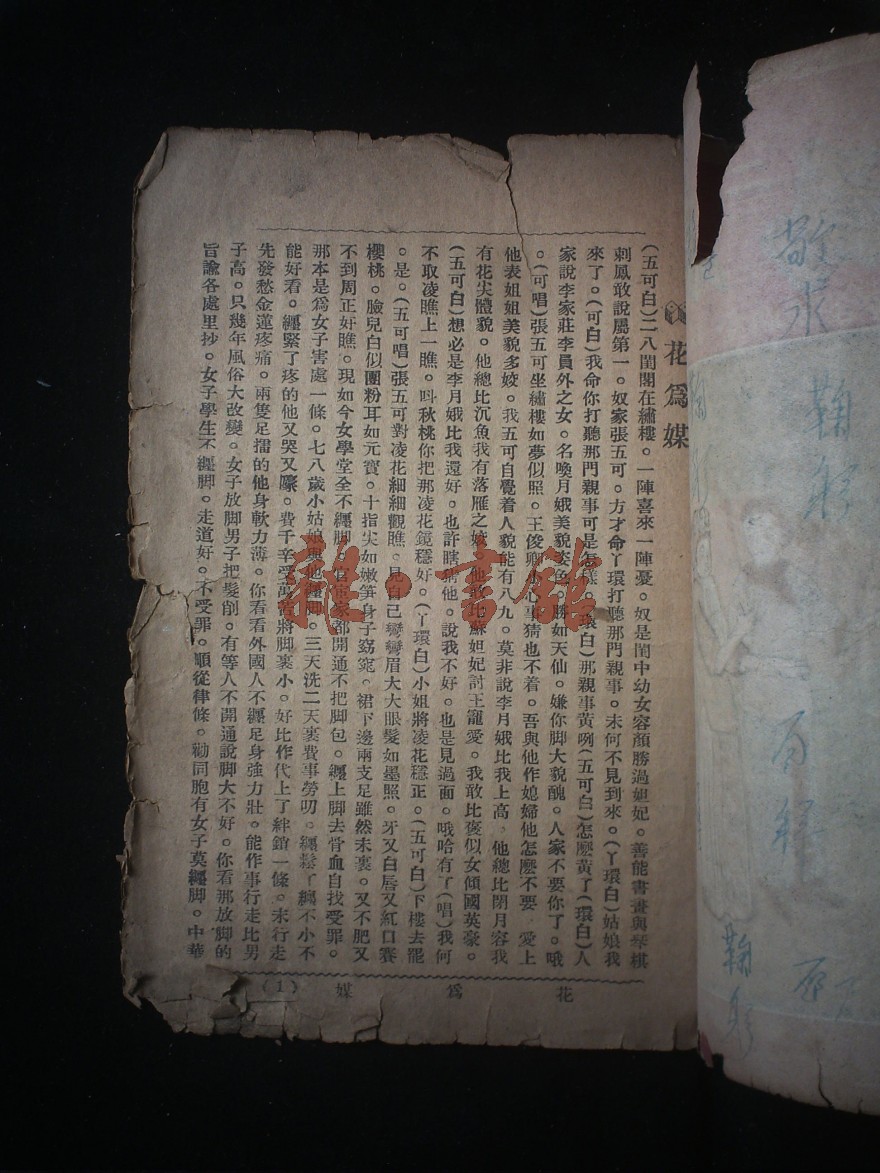 花爲媒
(五可白)二八閨閣在繡樓。一陣喜來一陣憂。奴是閨中幼女容顏勝過妲妃。善能書畫與琴棋
刺鳳敢說屬第一。奴家張五可。方才命丫環打聽那門親事。未何不見到來。(丫環白)姑娘我
來了。(可白)我命你打聽那門親事可是怎樣。(環白)那親事黃咧(五可白)怎麼黃了(環白)人
家說李家莊李員外之女。名喚月娥美貌姿色。勝如天仙。嫌你脚大貌醜。人家不要你了。哦
。(可唱)張五可坐繡樓如夢似照。王俊卿小心事猜也不着。吾與他作媳婦他怎麼不要。愛上
他表姐姐美貌多姣。我五可自覺着人貌能有八九。莫非說李月娥比我上高。他總比閉月容我
有花尖體貌。他總比沉魚我有落雁之姣。他敢比蘇妲妃討王寵愛。我敢比褒似女傾國英豪。
(五可白)想必是李月娥比我還好。也許瞎謅他。說我不好。也是見過面。哦哈有了(唱)我何
不取凌瞧上一瞧。叫秋桃你把那凌花鏡穩好。(丫環白)小姐將凌花穩正。(五可白)下樓去罷
。是。(五可唱)張五可對凌花細細觀瞧。見自己彎彎眉大大眼髮如墨照。牙又白唇又紅口賽
櫻桃。臉兒白似團粉耳如元寶。十指尖如嫩笋身子窈窕。裙下邊兩支足雖然未裹。又不肥又
不到周正好瞧。現如今女學堂全不纏脚。官宦家都開通不把脚包。纏上脚去骨血自找受罪。
那本是爲女子害處一條。七八歲小姑娘與他纏脚。三天洗二天裹費事勞叨。纏鬆了纏不小不
能好看。纏緊了疼的他又哭又嚎。費千辛受萬苦將脚裹小。好比作代上了絆鎖一條。未行走
先發愁金蓮疼痛。兩隻足擂的他身軟力薄。你看看外國人不纏足身強力壯。能作事行走比男
子高。只幾年風俗大改變。女子放脚男子把髮削。有等人不開通說脚大不好。你看那放脚的
旨諭各處里抄。女子學生不纏脚。走道好。不受罪。順從律條。勸同胞有女子莫纏脚。中華
花爲媒
(1)
雜·書館
鞠躬